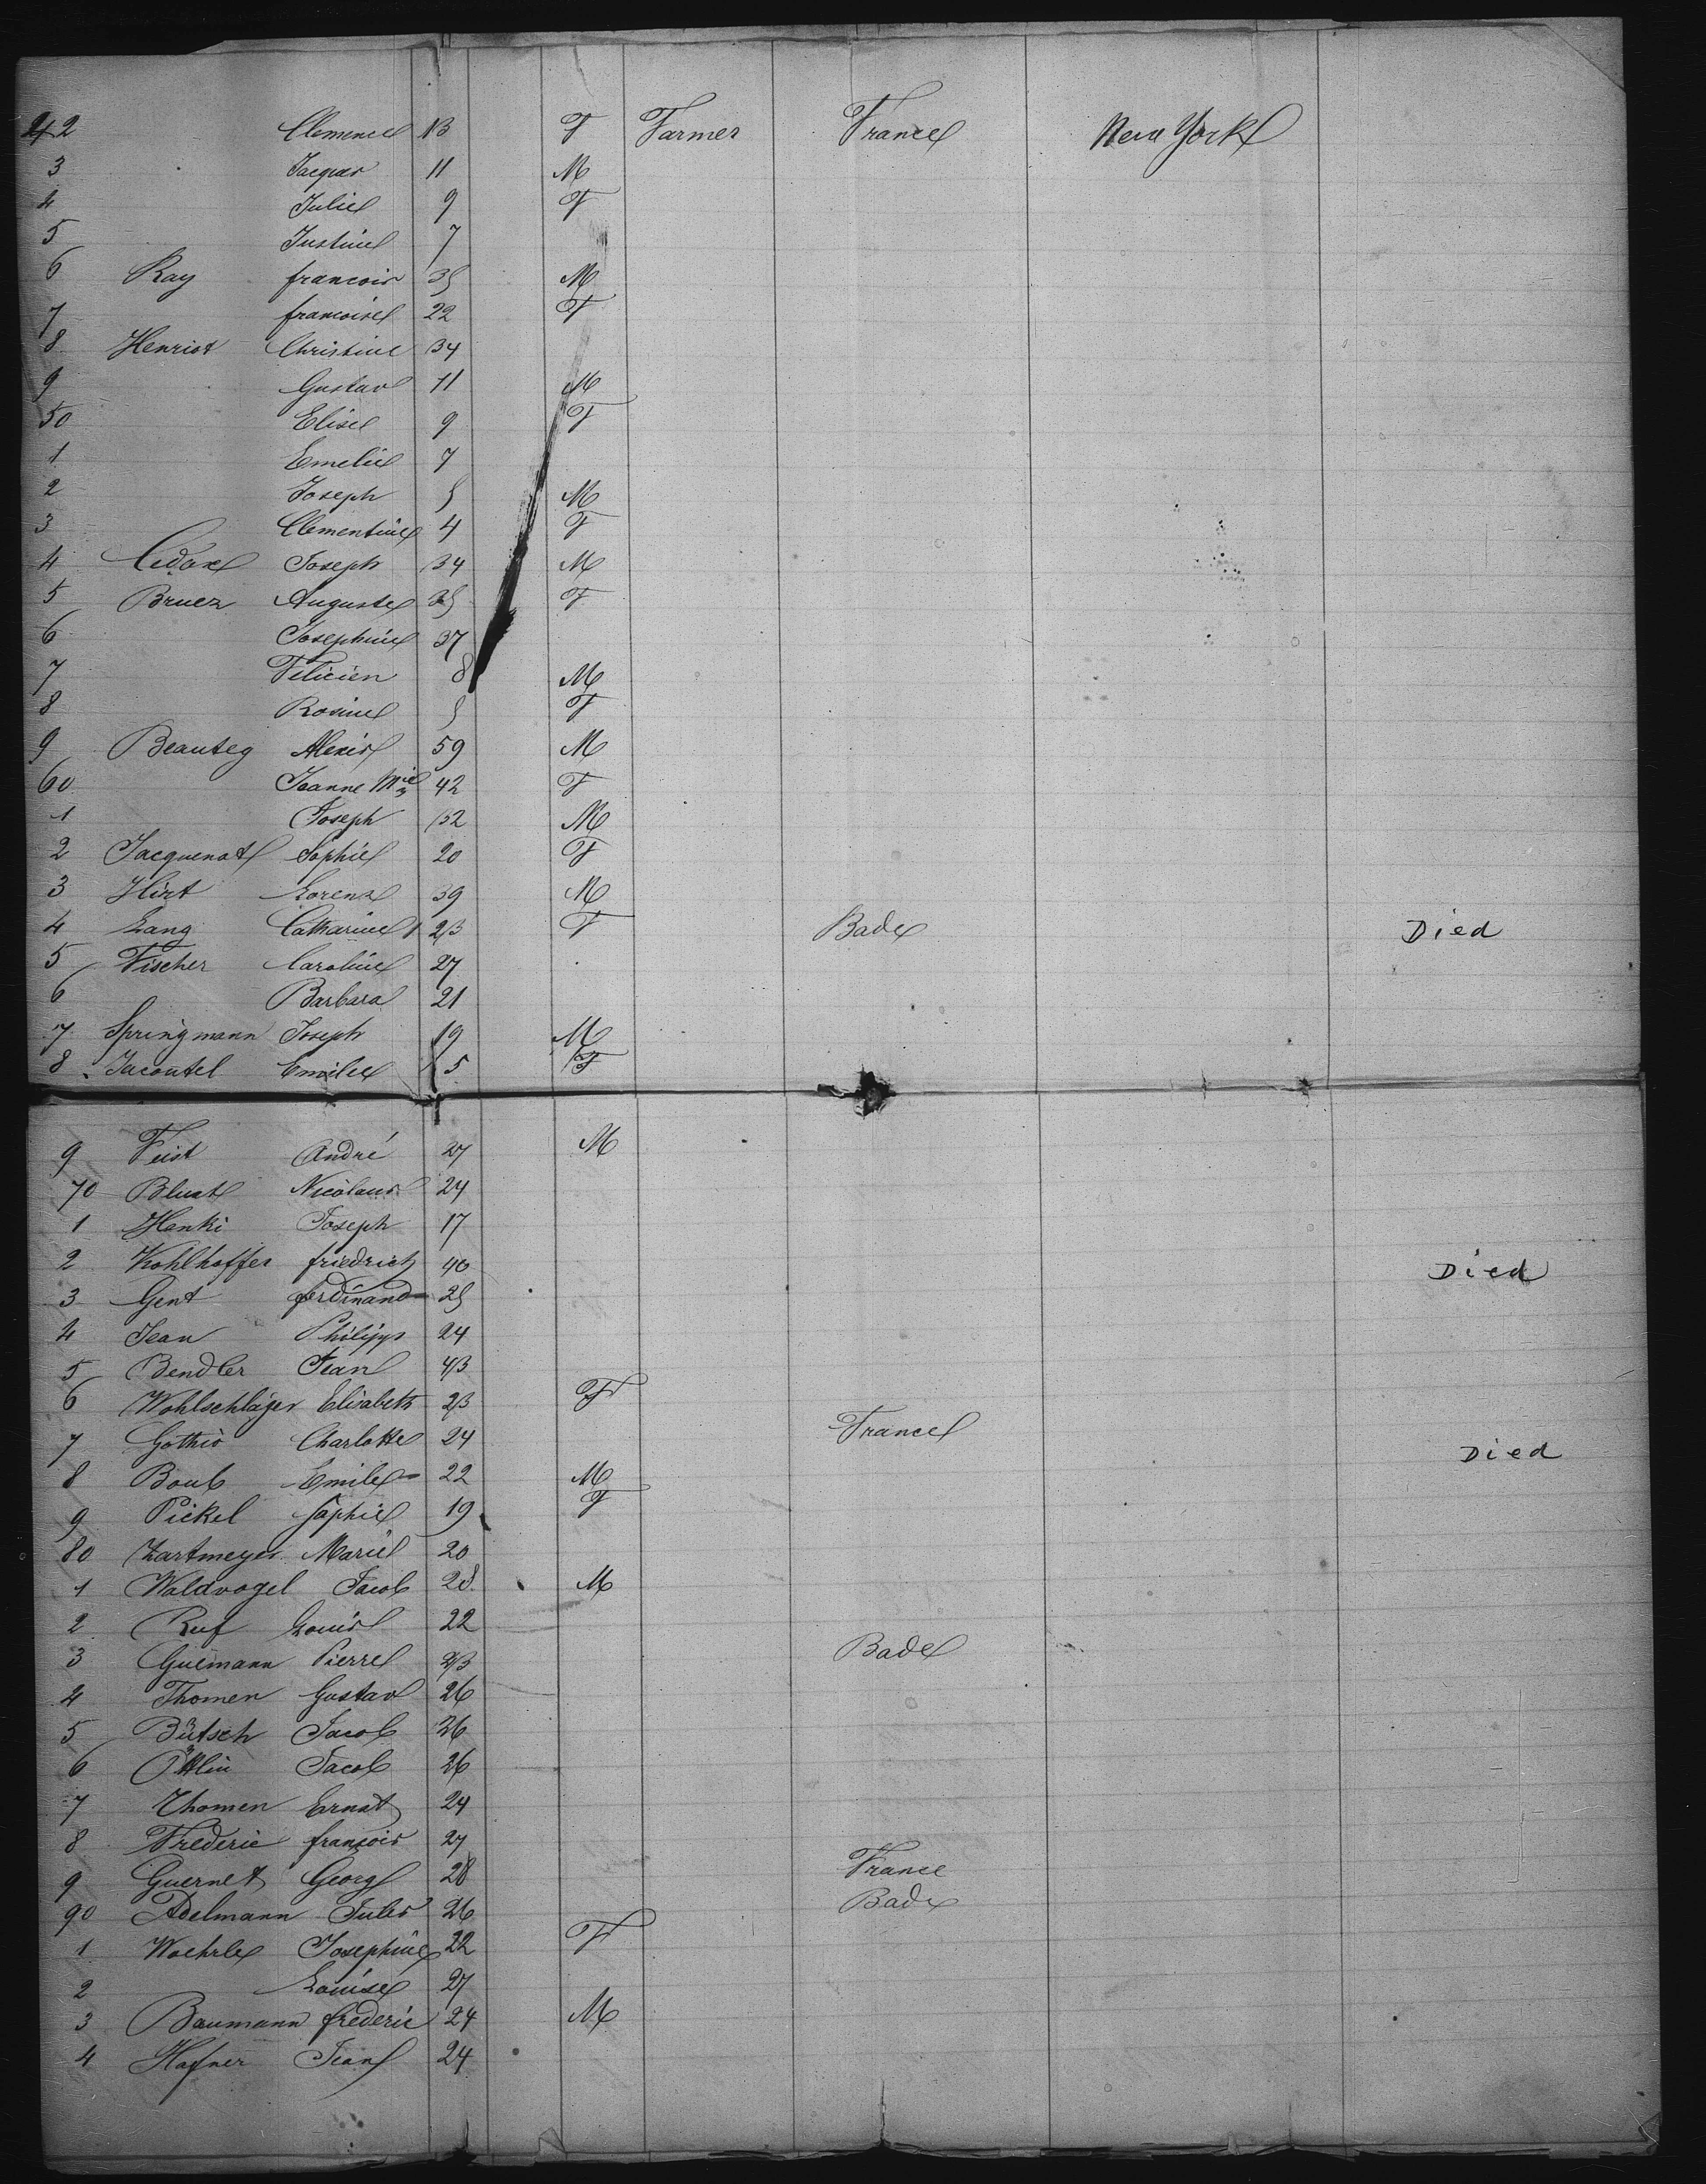 42 Clemence 13 F Farmer France New York
3 Jacques 11 M
4 Julie 9 F
5 Justine 7
6 Ray francois 35 M
7 francoise 22 F
8 Henriot Christine 34
9 Gustav 11 M
50 Elise 9 F
1 Emelie 7
2 Joseph 5 M
3 Clementine 4 F
4 Joseph 34 M
5 Bruez Auguste 35 F
6 Josephine 37
7 Felicien 8 M
8 Rosine 5 F
9 Beauteg Alexis 59 M
60 Jeanne Mie 42 F
1 Joseph 32 M
2 Jacquenot Sophie 20 F
3 Hirt Lorenz 39 M
4 Lang Catharine 23 F Bade Died
5 Fischer Caroline 27
6 Barbara 21
7 Springmann Joseph 19 M
8 Jacoutel Emilee 5 F
9 Feist André 27 M
70 Bluat Nicolaus 24
1 Henki Joseph 17
2 Kohlhoffer friedrich 40 Died
3 Gent ferdinand 25
4 Jean Philipp 24
5 Bendler Jean 43
6 Wohlschläger Elisabeth 23 F
7 Gothis Charlotte 24 France Died
8 Boub Emile 22 M
9 Pickel Sophie 19 F
80 Zartmeyer Marie 20
1 Waldvogel Jacob 28 M
2 Ruf Louis 22
3 Guemann Pierre 23 Bade
4 Thomen Gustav 26
5 Bütsch Jacob 26
6 Öttlin Jacob 26
7 Thomen Ernst 24
8 Frederic françois 27
9 Guernet Georg 28 France
90 Adelmann Jules 26 Bade
1 Woehrle Josephine 22 F
2 Louise 27
3 Baumann frederic 24 M
4 Hafner Jean 24